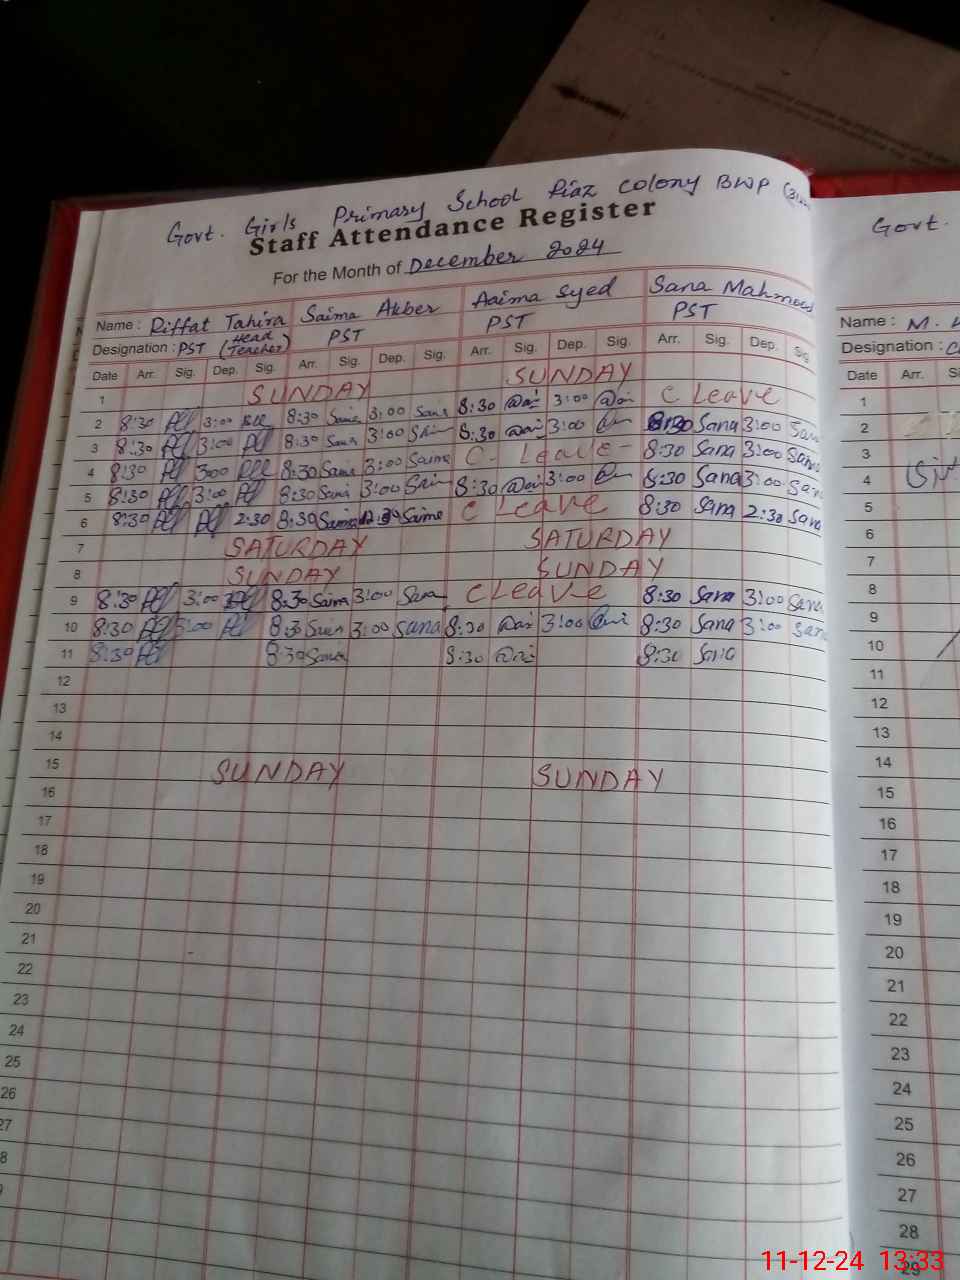 Govt. Girls Primary School Riaz Colony BWP
Staff Attendance Register
For the Month of December 2024
Name : Riffat Tahira Saima Akber Aaima Syed Sana Mahmood
Designation : PST (Head Teacher) PST PST PST
Date Arr. Sig. Dep. Sig. Arr. Sig. Dep. Sig. Arr. Sig. Dep. Sig. Arr. Sig. Dep. Sig.
1 SUNDAY SUNDAY C Leave
2 8:30 3:00 8:30 Saima 3:00 Saima 8:30 3:00 8:30 Sana 3:00 Sana
3 8:30 3:00 8:30 Saima 3:00 8:30 3:00 8:30 Sana 3:00 Sana
4 8:30 300 8:30 Saima 3:00 Saima C - Leave - 8:30 Sana 3:00 Sana
5 8:30 3:00 8:30 Saima 3:00 8:30 3:00 8:30 Sana 3:00 Sana
6 8:30 2:30 8:30 Saima Saima C Leave 8:30 Sana 2:30 Sana
7 SATURDAY SATURDAY
8 SUNDAY SUNDAY
9 8:30 3:00 8:30 Saima 3:00 Sana C Leave 8:30 Sana 3:00 Sana
10 8:30 3:00 8:30 3:00 Sana 8:30 3:00 8:30 Sana 3:00 Sana
11 8:30 8:30 8:30 8:30 Sana
12
13
14
15 SUNDAY SUNDAY
16
17
18
19
20
21
22
23
24
25
26
27
8
Govt.
Name : M.
Designation :
Date Arr.
1
2
3
4
5
6
7
8
9
10
11
12
13
14
15
16
17
18
19
20
21
22
23
24
25
26
27
28
29
11-12-24 13:33